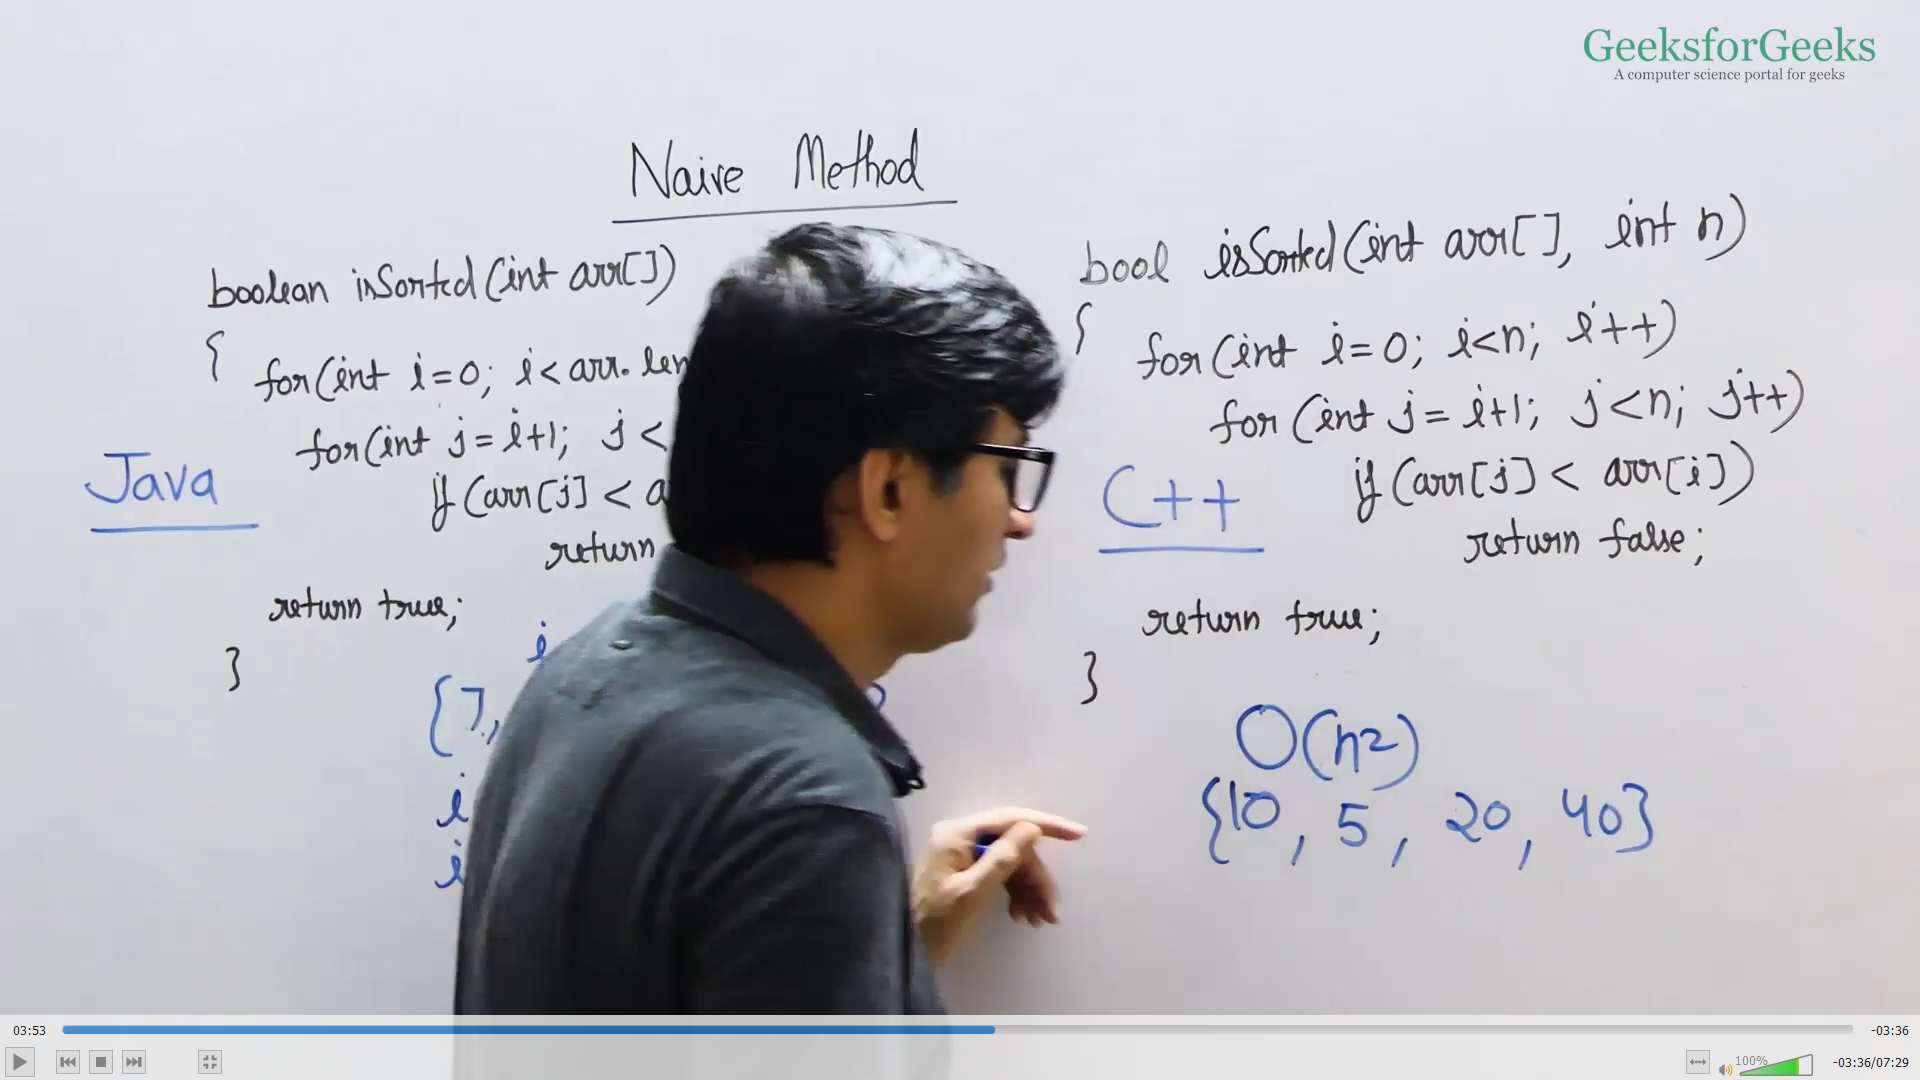 GeeksforGeeks
A computer science portal for geeks
Naive Method
boolean isSorted(int arr[])
{
for(int i=0; i<arr.len
for(int j=i+1; j<
if(arr[j] < a
return
return true;
}
Java
i
{7,
i
i
bool isSorted(int arr[], int n)
{
for(int i=0; i<n; i++)
for(int j=i+1; j<n; j++)
if(arr[j] < arr[i])
return false;
return true;
}
C++
O(n²)
{10, 5, 20, 40}
03:53
-03:36
100%
-03:36/07:29